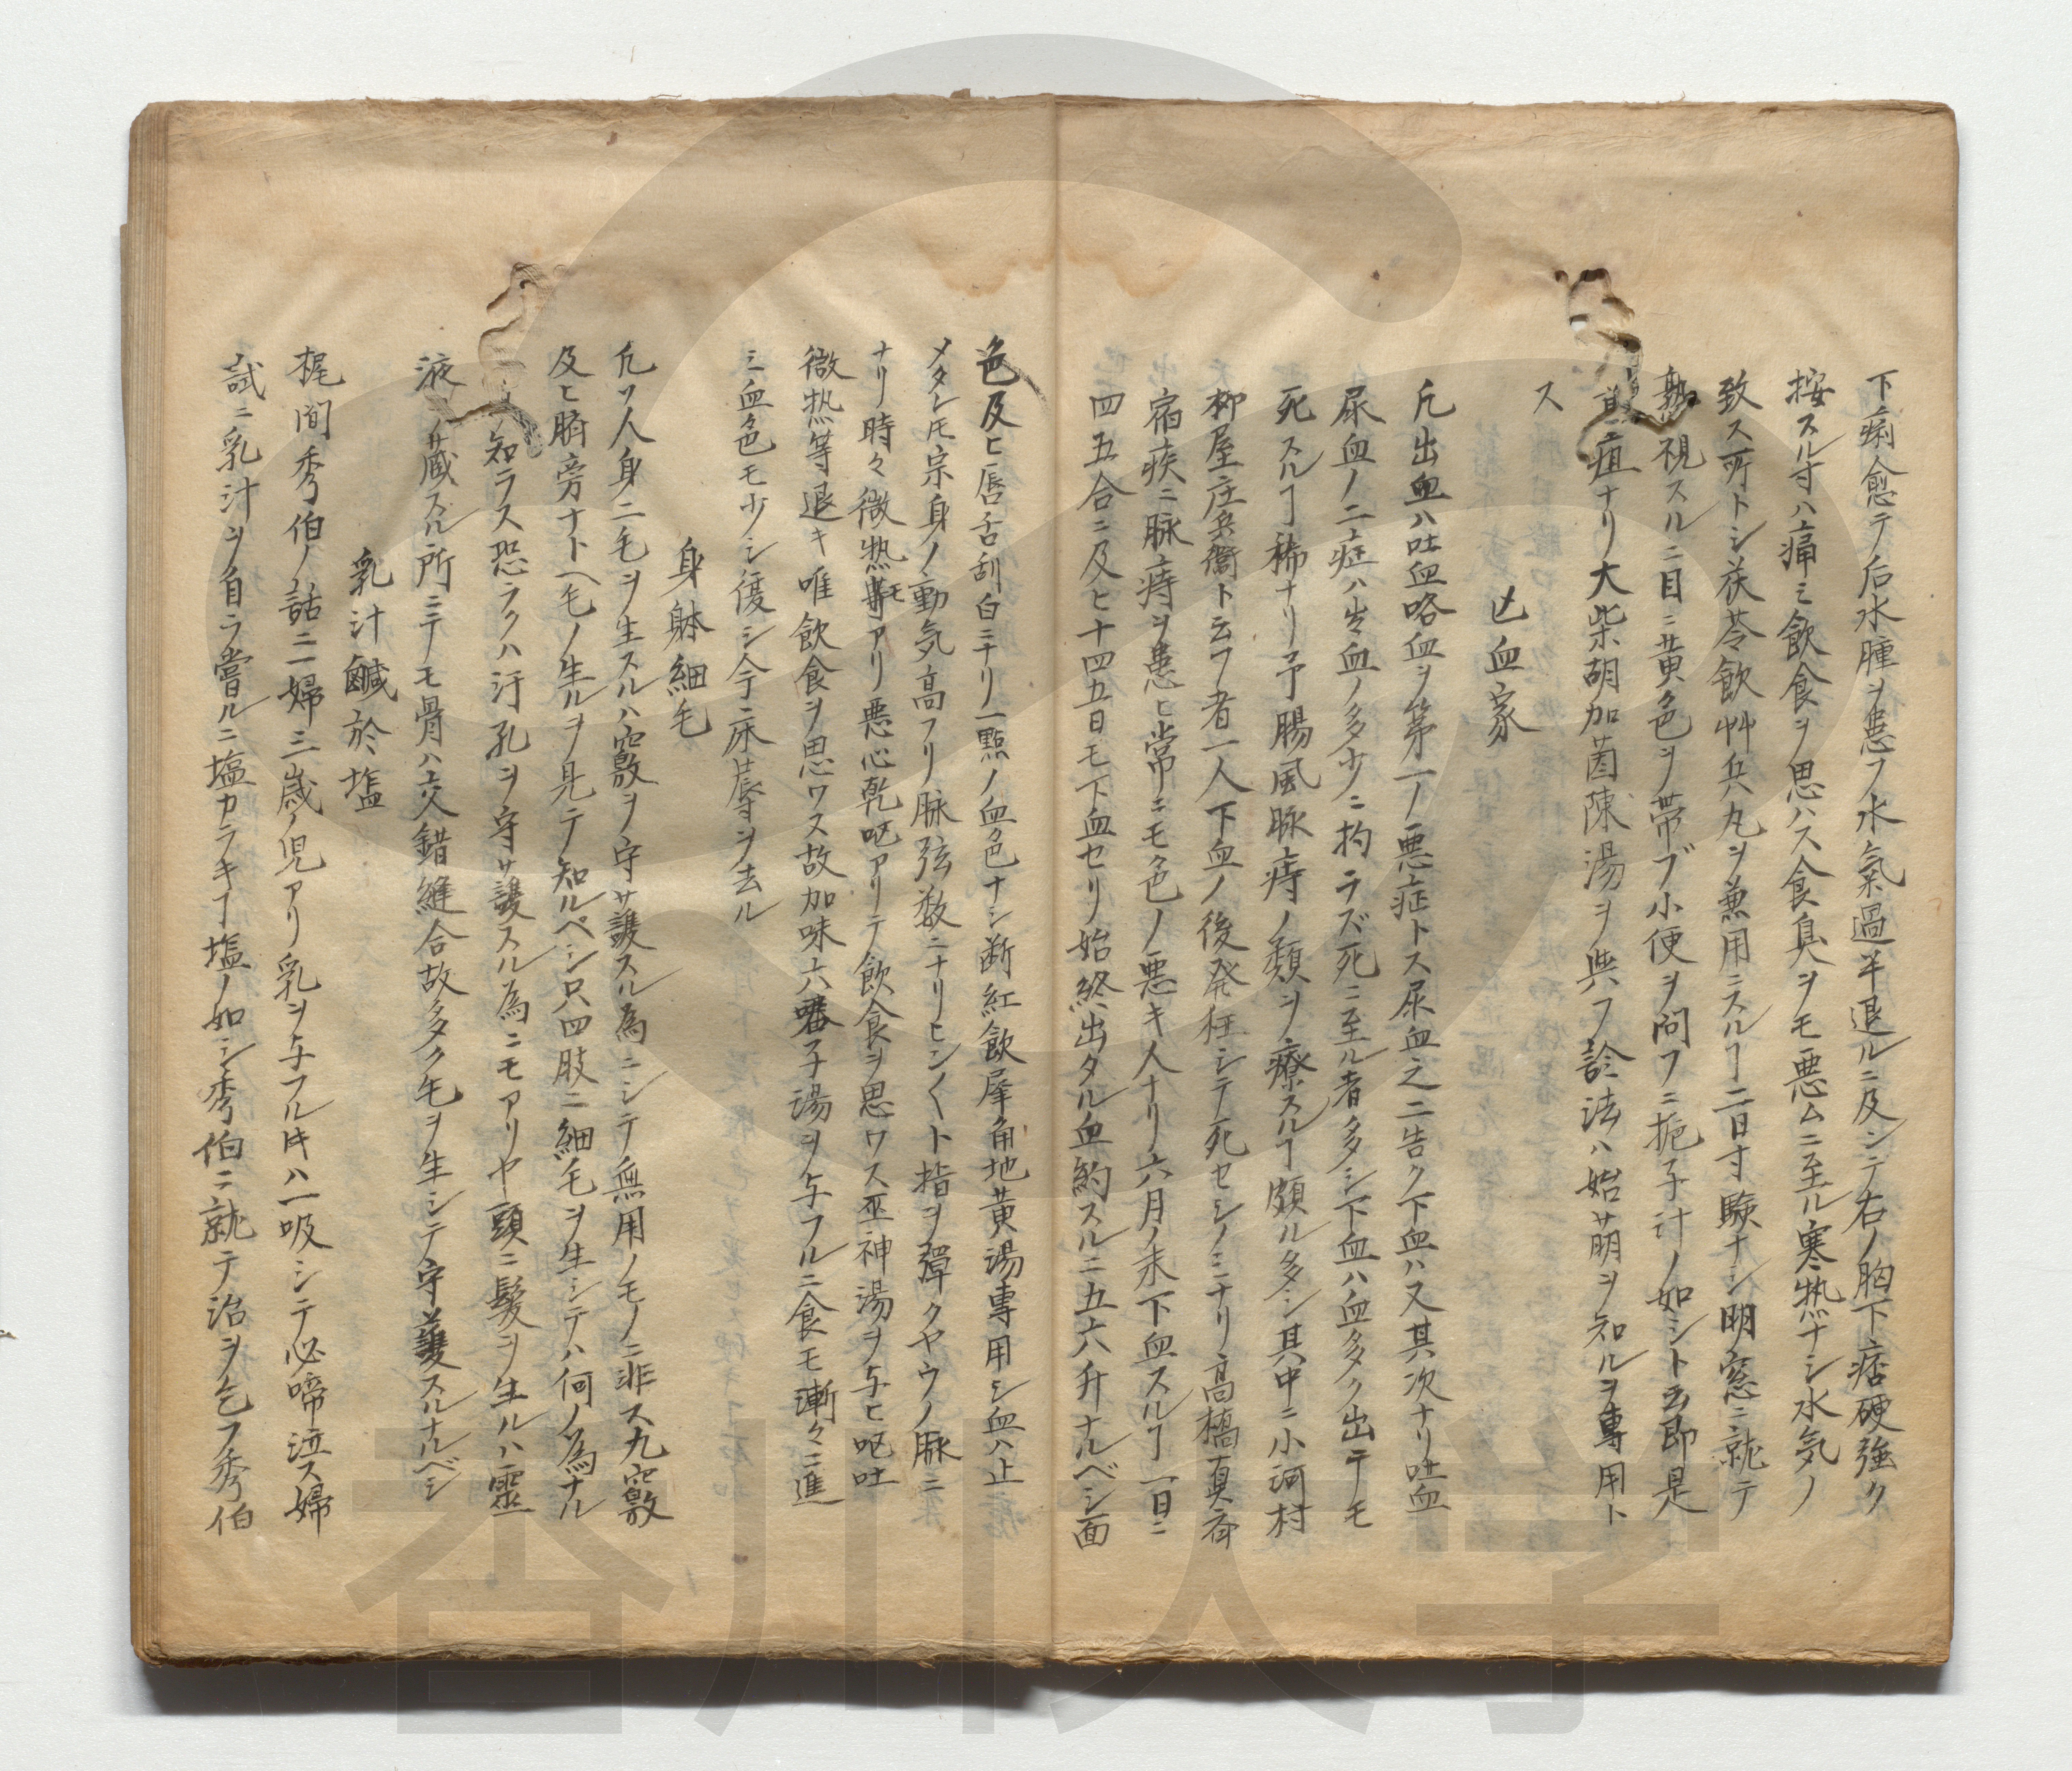 下痢愈テ后水腫ヲ患フ水氣過半退ルニ及シテ右ノ胸下痞硬強ク
按スル寸ハ痛ミ飲食ヲ思ハス食臭ヲモ悪ムニ至ル寒熱ナシ水気ノ
致ス所トシ茯苓飲艸兵丸ヲ兼用ニスルヿ二日寸験ナシ明窓ニ就テ
熟視スルニ目ニ黄色ヲ帯ブ小便ヲ問フニ梔子汁ノ如シト云即是
黄疸ナリ大柴胡加茵陳湯ヲ與フ診法ハ始萠ヲ知ルヲ専用ト
ス
亡血家
凡出血ハ吐血咯血ヲ第一ノ悪症トス尿血之ニ告ク下血ハ又其次ナリ吐血
尿血ノ二症ハ出血ノ多少ニ拘ラズ死ニ至ル者多シ下血ハ血多ク出テモ
死スルヿ稀ナリ予腸風脉痔ノ類ヲ療スルヿ頗ル多シ其中ニ小河村
柳屋庄兵衞ト云フ者一人下血ノ後発狂シテ死セシノミナリ高橋真斎
宿疾ニ脉痔ヲ患ヒ常ニモ色ノ悪キ人ナリ六月ノ末下血スルヿ一日ニ
四五合ニ及ヒ十四五日モ下血セリ始終出タル血約スルニ五六升ナルベシ面
色及ヒ唇舌刮白ニナリ一點ノ血色ナシ断紅飲犀角地黄湯専用シ血ハ止
メタレモ宗身ノ動気高フリ脉弦数ニナリヒシ〱ト指ヲ彈クヤウノ脈ニ
ナリ時々微熱モアリ悪心乾呕アリテ飲食ヲ思ワス巫神湯ヲ与ヒ呕吐
微热等退キ唯飲食ヲ思ワス故加味六君子湯ヲ与フルニ食モ漸々ニ進
ミ血色モ少シ復シ今ニ床蓐ヲ去ル
身躰細毛
凢ソ人身ニ毛ヲ生スルハ竅ヲ守サ護スル為ニシテ無用ノモノニ非ス九竅
及ヒ臍旁ナトヘ毛ノ生ルヲ見テ知ルベシ只四肢ニ細毛ヲ生シテハ何ノ為ナル
知ラス恐ラクハ汗孔ヲ守サ護スル為ニモアリヤ頭ニ髪ヲ生ルハ靈
液ノ蔵スル所ニテモ骨ハ交錯縫合故多ク毛ヲ生シテ守護スルナルベシ
乳汁鹹於塩
梶間秀伯ノ話ニ一婦三歳ノ児アリ乳ヲ与フル时ハ一吸シテ必啼泣ス婦
試ニ乳汁ヲ自ラ嘗ルニ塩カラキヿ塩ノ如シ秀伯ニ就テ治ヲ乞フ秀伯